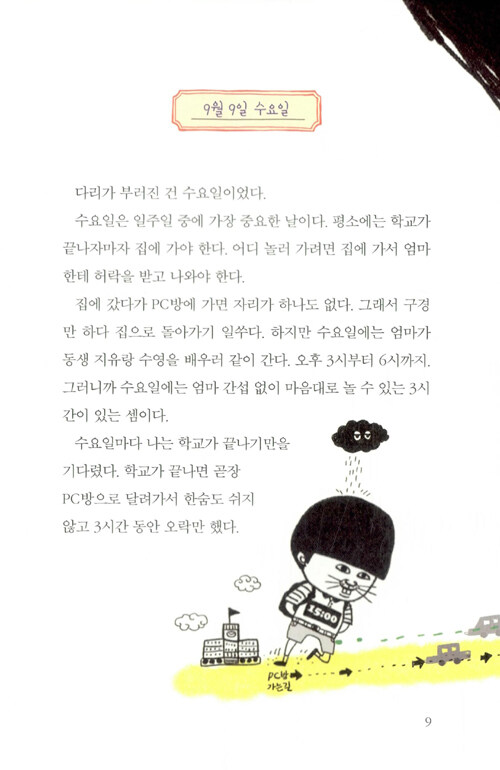 9월 9일 수요일
다리가 부러진 건 수요일이었다.
수요일은 일주일 중에 가장 중요한 날이다. 평소에는 학교가
끝나자마자 집에 가야 한다. 어디 놀러 가려면 집에 가서 엄마
한테 허락을 받고 나와야 한다.
집에 갔다가 PC방에 가면 자리가 하나도 없다. 그래서 구경
만 하다 집으로 돌아가기 일쑤다. 하지만 수요일에는 엄마가
동생 지유랑 수영을 배우러 같이 간다. 오후 3시부터 6시까지.
그러니까 수요일에는 엄마 간섭 없이 마음대로 놀 수 있는 3시
간이 있는 셈이다.
수요일마다 나는 학교가 끝나기만을
기다렸다. 학교가 끝나면 곧장
PC방으로 달려가서 한숨도 쉬지
않고 3시간 동안 오락만 했다.
15:00
PC방
가는길
9